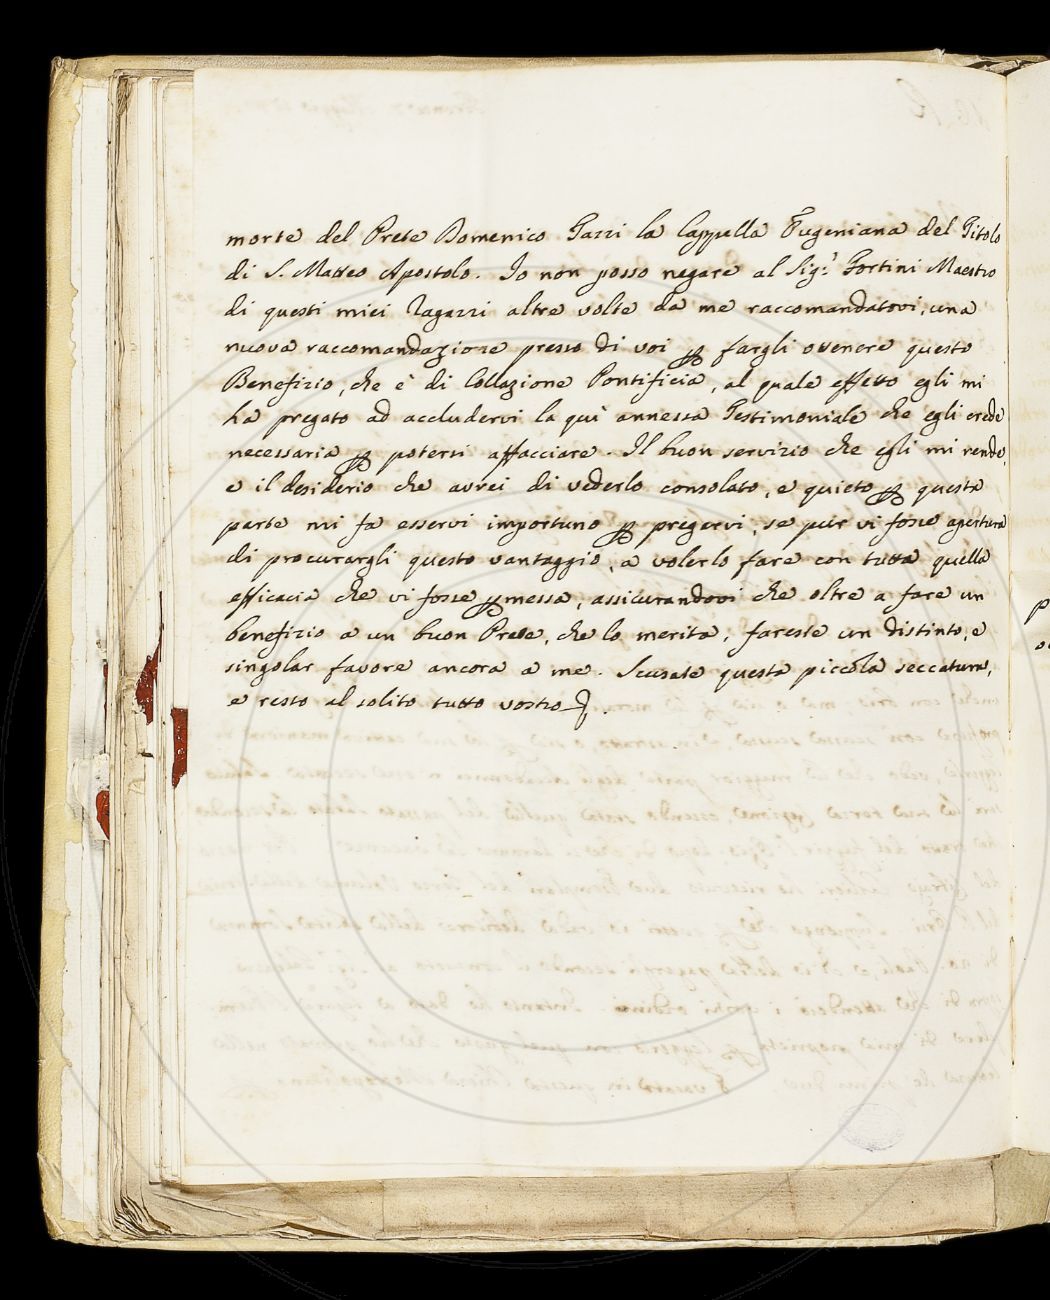 morte del Prete Domenico Tazzi la Cappella Eugeniana del Titolo
di S. Matteo Apostolo. Io non posso negare al Sig.r Fortini Maestro
di questi miei Ragazzi altre volte da me raccomandatovi, una
nuova raccomandazione presso di voi p fargli ottenere questo
Benefizio, che è di Collazione Pontificia, al quale effetto egli mi
ha pregato ad accludervi la quì annessa Testimoniale che egli crede
necessaria p potersi affacciare. Il buon servizio che egli mi rende,
e il desiderio che avrei di vederlo consolato, e quieto p questa
parte mi fa esservi importuno p pregarvi, se pur vi fosse apertura
di procurargli questo vantaggio, a volerlo fare con tutta quella
efficacia che vi fosse pmessa, assicurandovi che oltre a fare un
benefizio a un buon Prete, che lo merita, fareste un distinto, e
singolar favore ancora a me. Scusate questa piccola seccatura,
e resto al solito tutto vostro